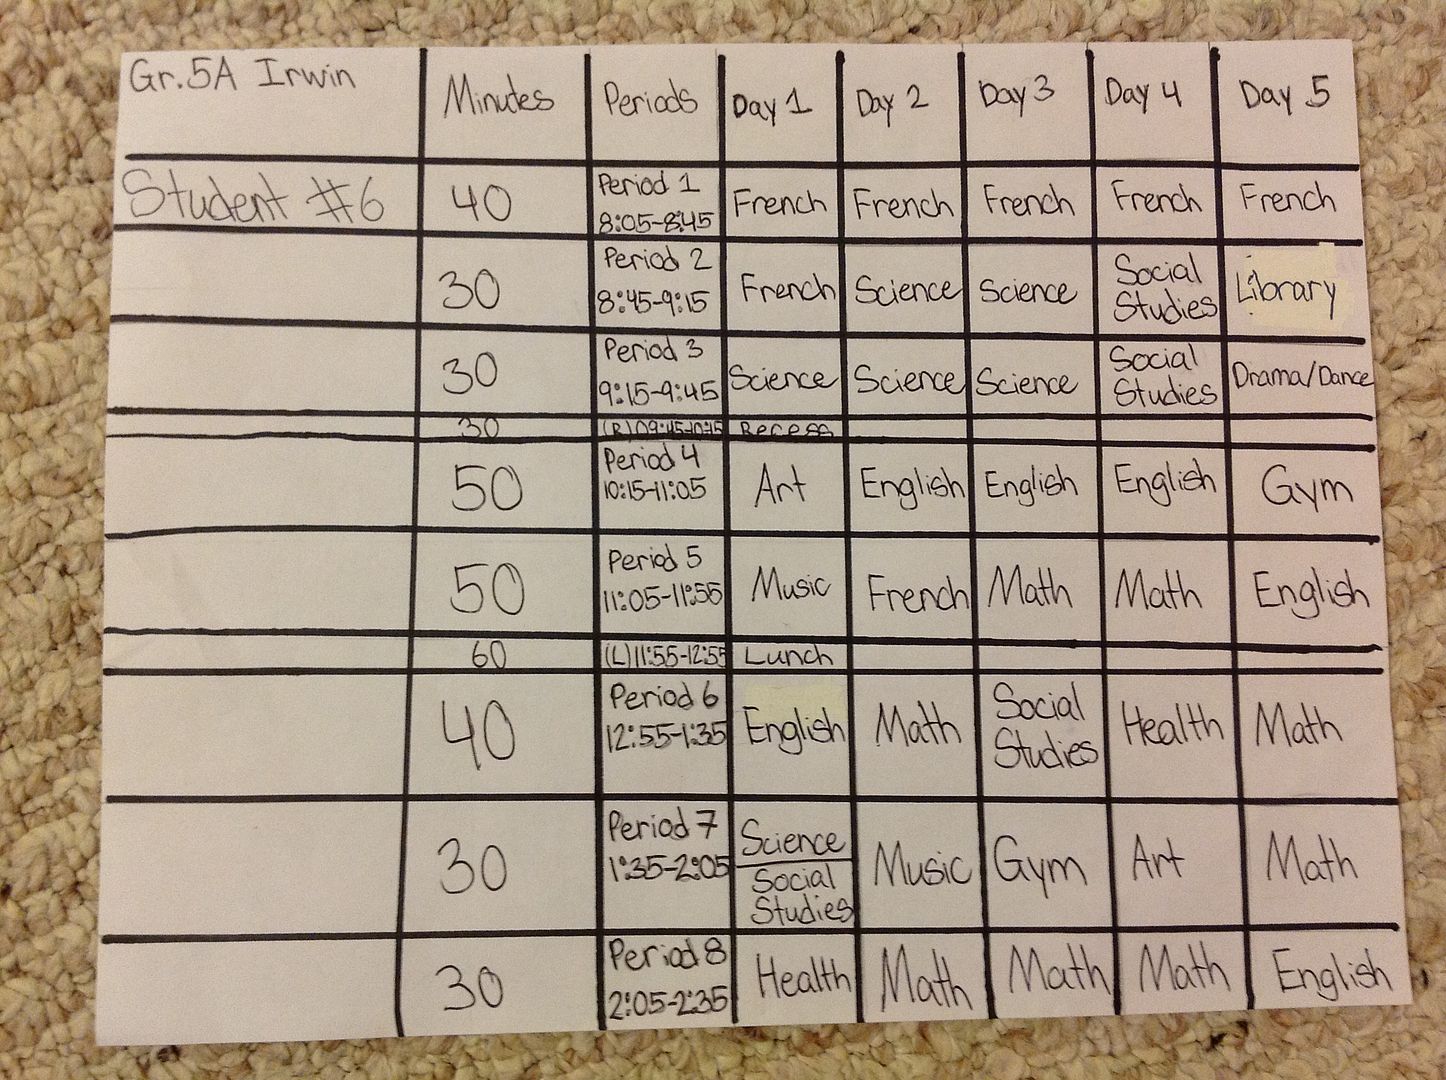 Gr.5A Irwin Minutes Periods Day 1 Day 2 Day 3 Day 4 Day 5
Student #6 40 Period 1 French French French French French
8:05-8:45
30 Period 2 French Science Science Social Library
8:45-9:15 Studies
30 Period 3 Science Science Science Social Drama/Dance
9:15-9:45 Studies
30 (R)09:45-10:15 Recess
50 Period 4 Art English English English Gym
10:15-11:05
50 Period 5 Music French Math Math English
11:05-11:55
60 (L)11:55-12:55 Lunch
40 Period 6 English Math Social Health Math
12:55-1:35 Studies
30 Period 7 Science Music Gym Art Math
1:35-2:05 Social
Studies
30 Period 8 Health Math Math Math English
2:05-2:35